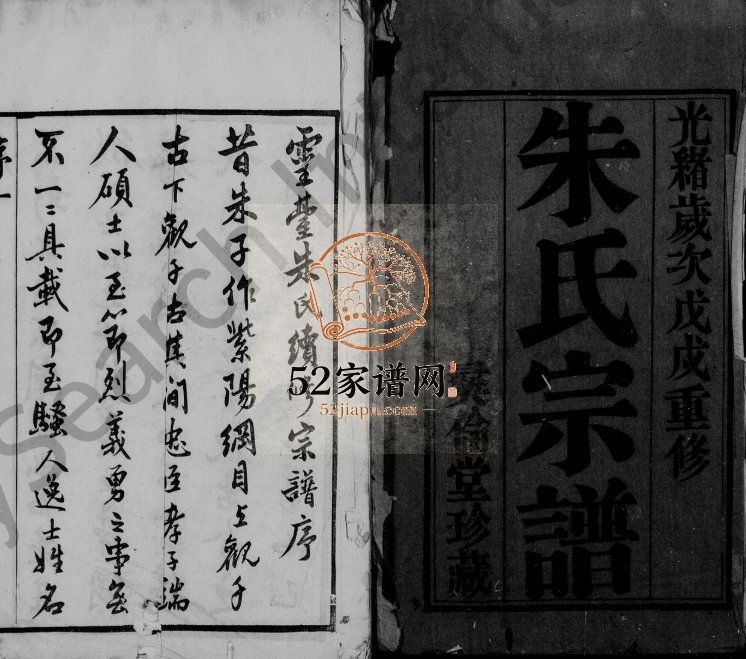 光緒歲次戊戌重修
朱氏宗譜
彝倫堂珍藏
靈臺朱氏續修宗譜序
昔朱子作紫陽綱目上觀千
古下觀千古其间忠臣孝子端
人碩士以至節烈義勇之事無
不一二具載即至騷人逸士姓名
序一
52家谱网
52jiapu.com